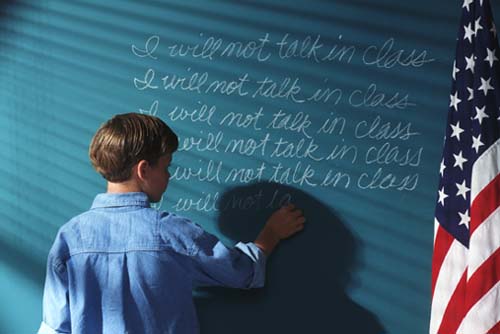 I will not talk in class
I will not talk in class
I will not talk in class
will not talk in class
will not talk in class
will not ta